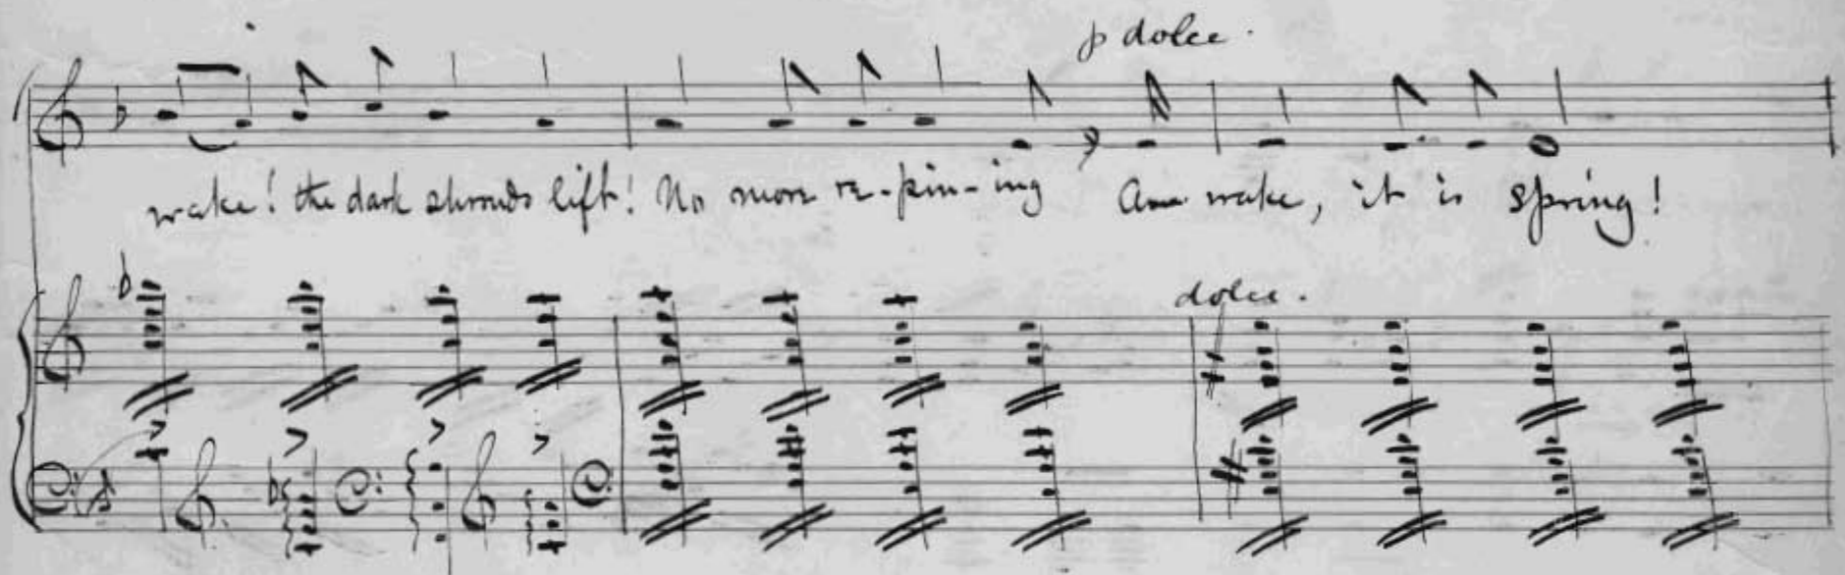 p dolce.
wake! the dark shrouds lift! No more re-pin-ing Awake, it is spring!
dolce.